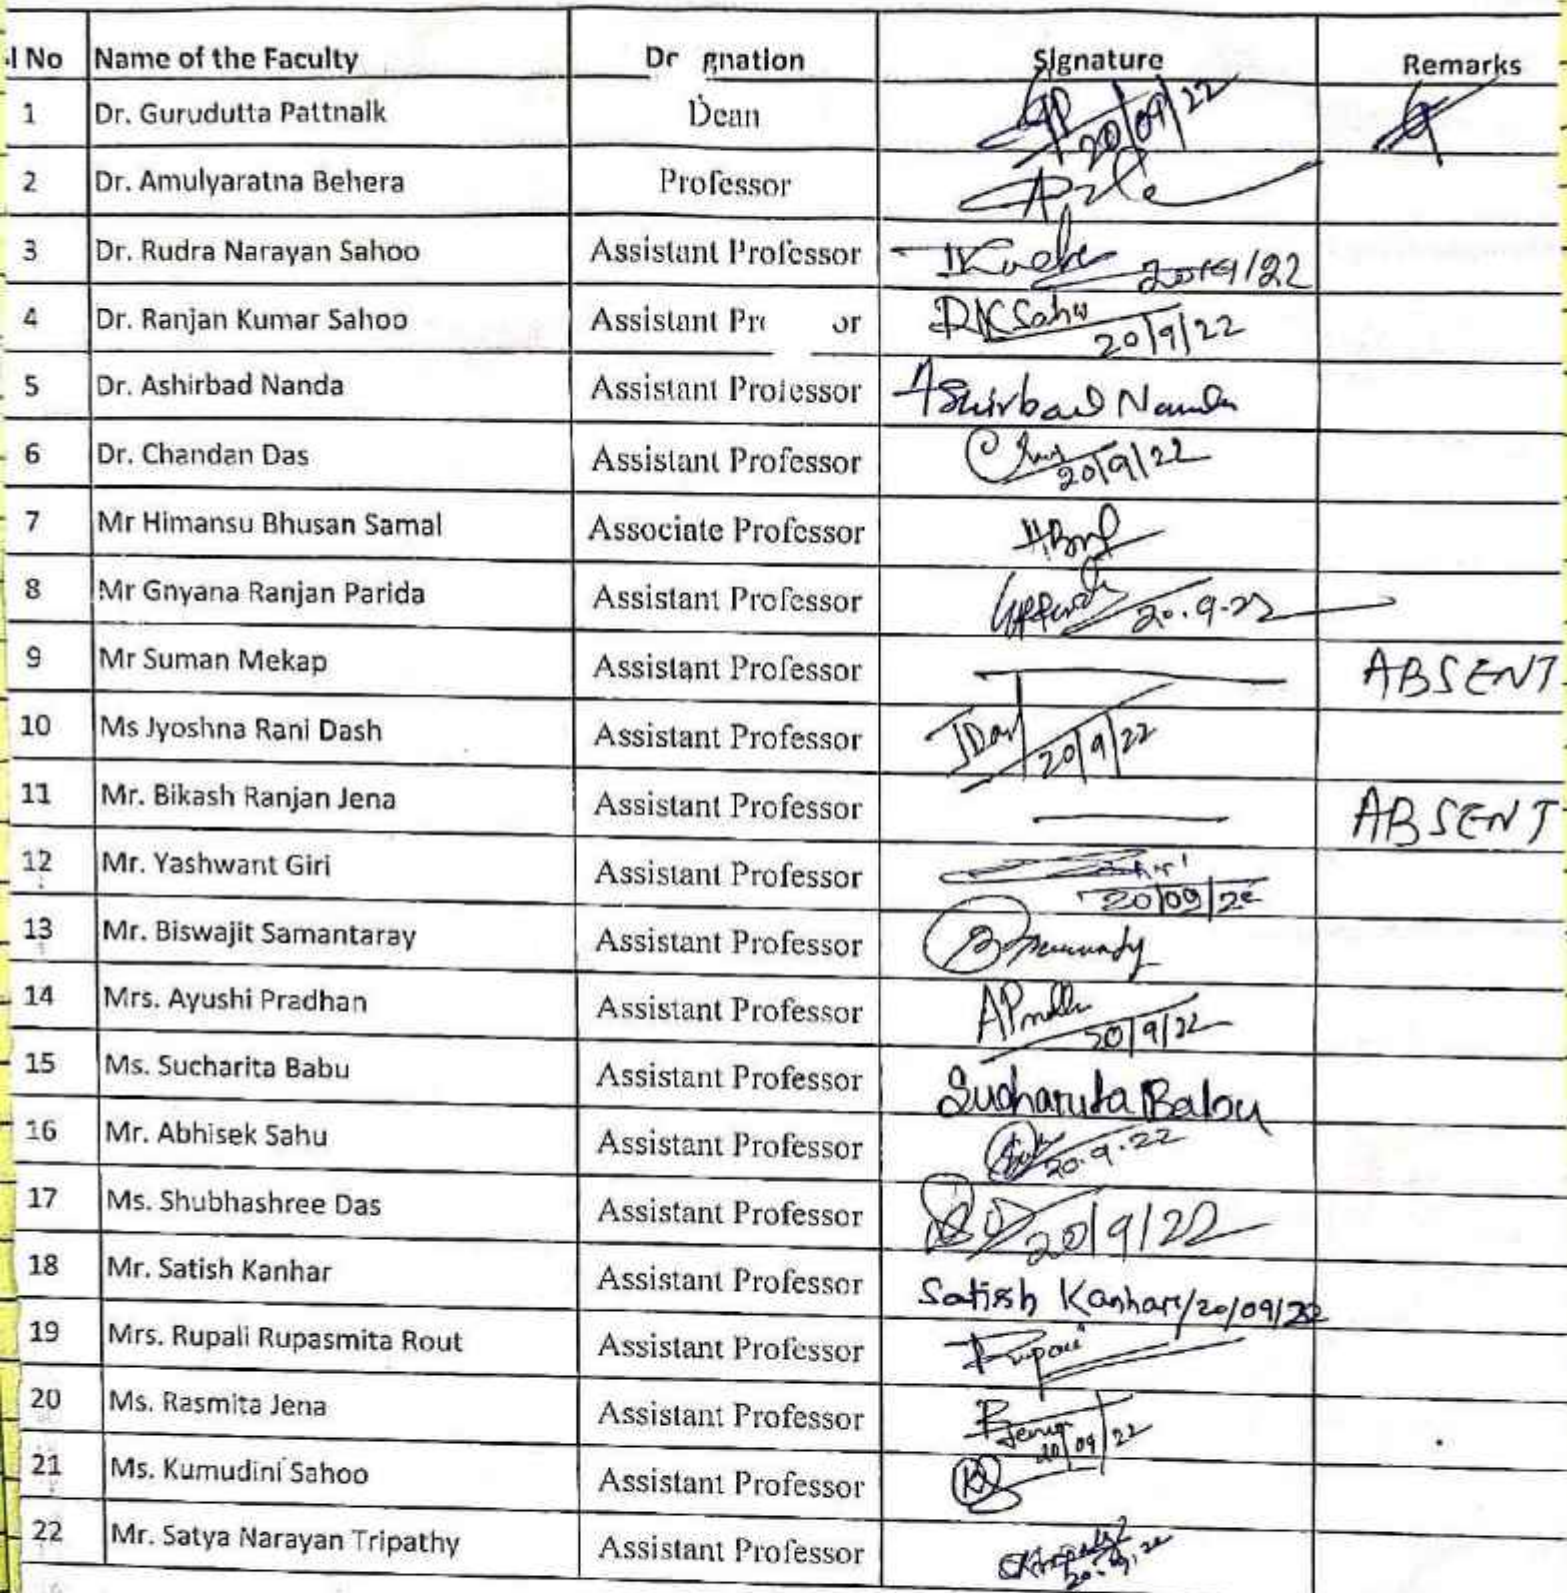 l No Name of the Faculty De gnation Signature Remarks
1 Dr. Gurudutta Pattnaik Dean GP 20/09/22
2 Dr. Amulyaratna Behera Professor
3 Dr. Rudra Narayan Sahoo Assistant Professor 20/9/22
4 Dr. Ranjan Kumar Sahoo Assistant Pr or RKSahoo 20/9/22
5 Dr. Ashirbad Nanda Assistant Professor Ashirbad Nanda
6 Dr. Chandan Das Assistant Professor 20/9/22
7 Mr Himansu Bhusan Samal Associate Professor
8 Mr Gnyana Ranjan Parida Assistant Professor 20.9.22
9 Mr Suman Mekap Assistant Professor ABSENT
10 Ms Jyoshna Rani Dash Assistant Professor JDash 20/9/22
11 Mr. Bikash Ranjan Jena Assistant Professor ABSENT
12 Mr. Yashwant Giri Assistant Professor 20/09/22
13 Mr. Biswajit Samantaray Assistant Professor
14 Mrs. Ayushi Pradhan Assistant Professor 20/9/22
15 Ms. Sucharita Babu Assistant Professor Sucharita Babu
16 Mr. Abhisek Sahu Assistant Professor 20.9.22
17 Ms. Shubhashree Das Assistant Professor SD 20/9/22
18 Mr. Satish Kanhar Assistant Professor Satish Kanhar/20/09/22
19 Mrs. Rupali Rupasmita Rout Assistant Professor Rupali
20 Ms. Rasmita Jena Assistant Professor RJena 20/09/22
21 Ms. Kumudini Sahoo Assistant Professor KS
22 Mr. Satya Narayan Tripathy Assistant Professor 20.09.22